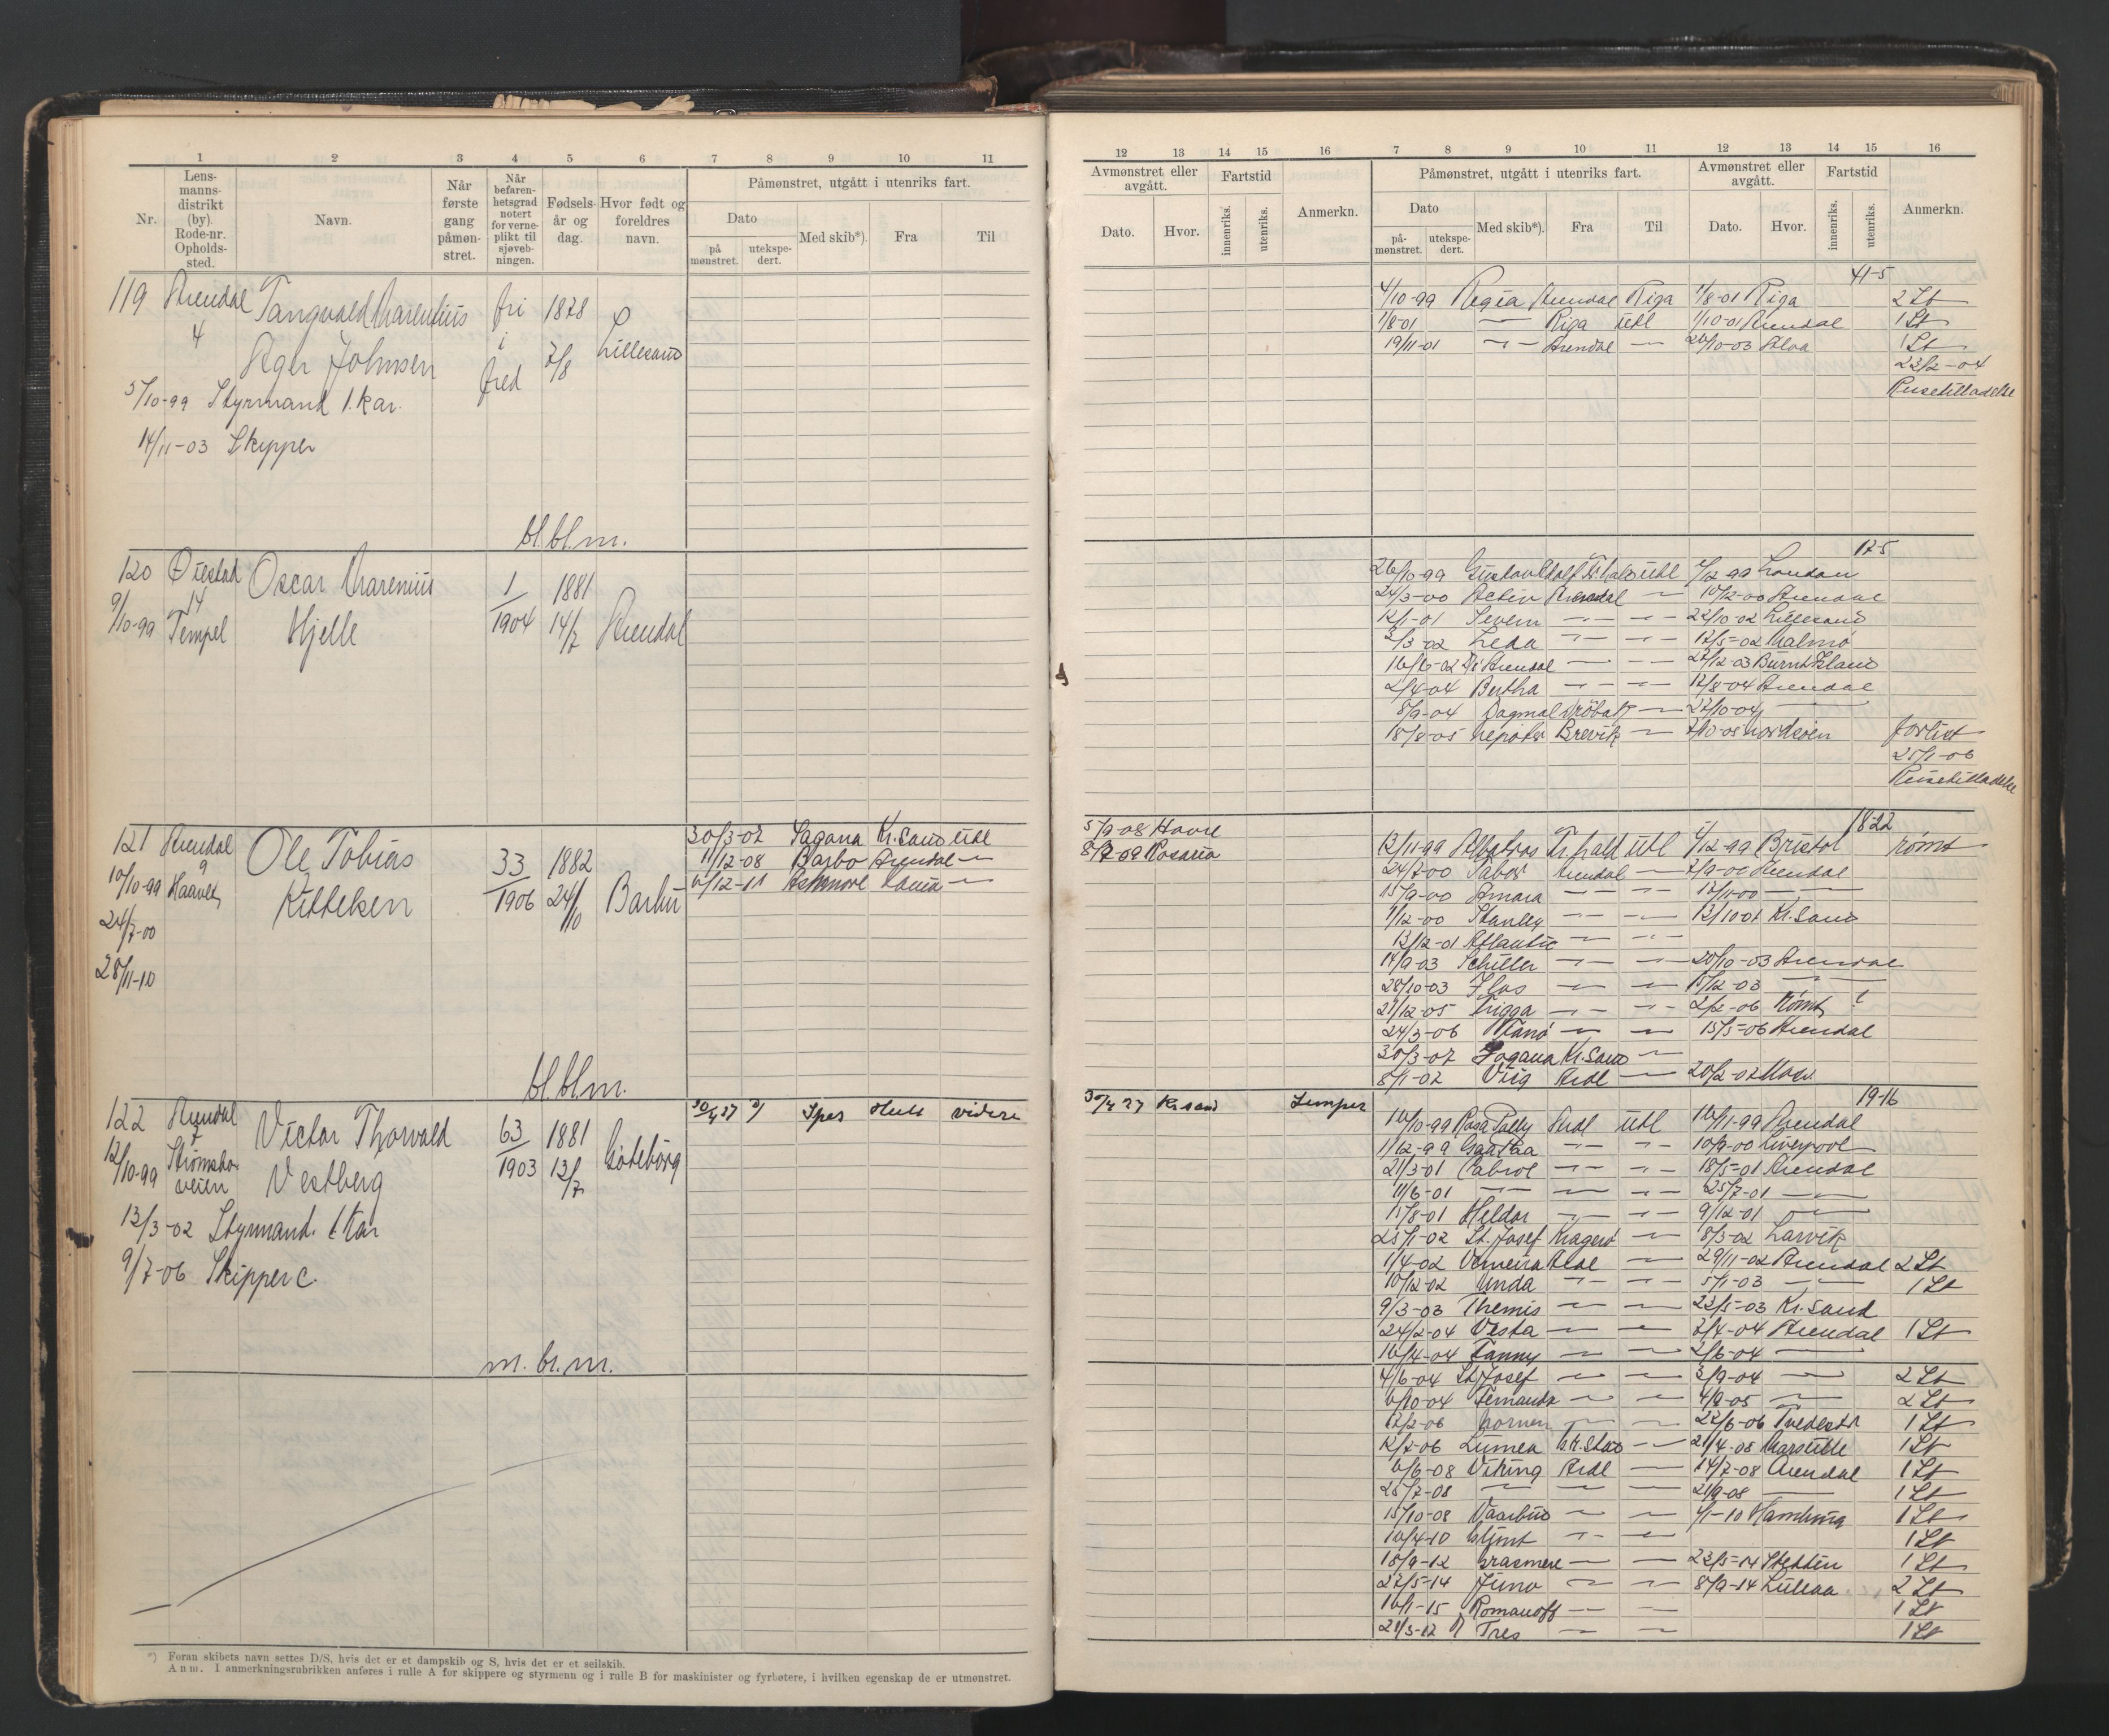 1 2 3 4 5 6 7 8 9 10 11
Nr.
Lens-
manns-
distrikt
(by).
Rode-nr.
Opholds-
sted.
Navn.
Når
første
gang
påmøn-
stret.
Når
befaren-
hetsgrad
notert
for verne-
plikt til
sjøveb-
ningen.
Fødsels-
år og
dag.
Hvor født og
foreldres
navn.
Påmønstret, utgått i utenriks fart.
Dato
på
mønstret.
utekspe-
dert.
Med skib*).
Fra
Til
119 Arendal Tangvald Marenius fri 1878
4 i Lillesand
Ager Johnsen fred 7/8
5/10-99 Styrmand 1. kar.
14/11-03 Skipper
bl. bl. m.
120 Øiestad Oscar Marenius 1 1881
14
9/10-99 Tempel Hjelle 1904 14/7 Arendal
121 Arendal Ole Tobias 33 1882 30/3-07 Sagana Kr. Sand utl
9 11/12-08 Barbo Arendal —
10/10-99 1906 24/10 Barbu 6/12-11 —
Kitteksen
24/7-00
28/11-10
bl. bl. m.
122 Arendal Victor Thorvald 63 1881 30/4 27 Spes videre
12/10-99 Strømsbo-
veien Vestberg 1903 13/7 Göteborg
13/3-02 Styrmand. 1. Kar
9/7-06 Skipper c.
m. br. m.
*) Foran skibets navn settes D/S, hvis det er et dampskib og S, hvis det er et seilskib.
Anm. I anmerkningsrabrikken anføres i rulle A for skippere og styrmenn og i rulle B for maskinister og fyrbøtere, i hvilken egenskap de er utmønstret.
12 13 14 15 16 7 8 9 10 11 12 13 14 15 16
Avmønstret eller
avgått.
Fartstid
Dato.
Hvor.
innenriks.
utenriks.
Anmerkn.
Påmønstret, utgått i utenriks fart.
Dato
på-
mønstret.
utekspe-
dert.
Med skib*).
Fra
Til
Avmønstret eller
avgått.
Fartstid
Dato.
Hvor.
innenriks.
utenriks.
Anmerkn.
41-5
4/10-99 Regia Arendal Riga 1/8-01 Riga 2 St
1/8-01 — Riga utl 1/10-01 Arendal 1 St
19/11-01 — Arendal — 26/10-03 Aloa 1 St
23/2-04
Reisetilladelse
17-5
26/10-99 Gustav Adolf utl /12-99 London
24/3-00 Arendal — 10/12-00 Arendal
12/1-01 Severn — — 22/10-02 Lillesand
3/3-02 Leda — — 12/5-02 Malmø
16/6-02 Arendal — — 27/12-03 Burnt Island
2/4-04 Bertha — — 12/8-04 Arendal
8/9-04 Dagmal Drøbak — 27/10-04 —
18/8-05 Brevik — /10-05 Nordsøen Forlist
25/1-06
Reisetilladelse
5/9-08 Havre 18-22
8/7-09 Rosario
13/11-99 Albatros utl 4/12-99 Bristol rømt
24/7-00 Tabor Arendal — 7/9-00 Arendal
15/9-00 Amara — — 17/11-00 —
1/12-00 Stanley — — 12/10-01 Kr. Sand
13/12-01 Atlantic — —
14/9-03 Schiller — — 20/10-03 Arendal
28/10-03 — — 15/12-03 —
21/12-05 Frigga — — 2/2-06 Rømt
24/3-06 — — 15/5-06 Arendal
30/3-07 Sagana Kr. Sand —
8/1-02 Viig Ardl — 20/2-02
30/4 27 Kr.sand 19-16
16/10-99 Ardl utl 16/11-99 Arendal
1/12-99 — — 10/9-00 Liverpool
21/3-01 Cabral — — 18/5-01 Arendal
11/6-01 — — — 25/7-01 —
15/8-01 Heldor — — 9/12-01 —
25/1-02 St. Josef Kragerø — 8/3-02 Larvik
1/4-02 Ardl — 29/11-02 Arendal 2 St
10/12-02 Unda — — 5/1-03 — 1 St
9/3-03 Themis — — 23/5-03 Kr. Sand
24/2-04 Vesta — — 7/4-04 Arendal 1 St
16/4-04 Fanny — — 2/6-04 —
4/6-04 St. Josef — — 3/9-04 — 2 St
6/10-04 Fernanda — — 4/9-05 — 2 St
12/2-06 — — 22/6-06 Tvedestr 1 St
12/7-06 Lumea — 21/4-08 Marseille 1 St
6/6-08 Viking Ardl — 14/7-08 Arendal 1 St
25/7-08 — — — 21/9-08 — 1 St
15/10-08 Vaarbud — — /1-10 Hamburg 1 St
16/4-10 — — 1 St
18/9-12 Grasmere — — 23/5-14 Stettin 1 St
27/5-14 Juno — — 8/9-14 2 St
16/1-15 Romanoff — — 1 St
21/3-12 Tres — — 1 St